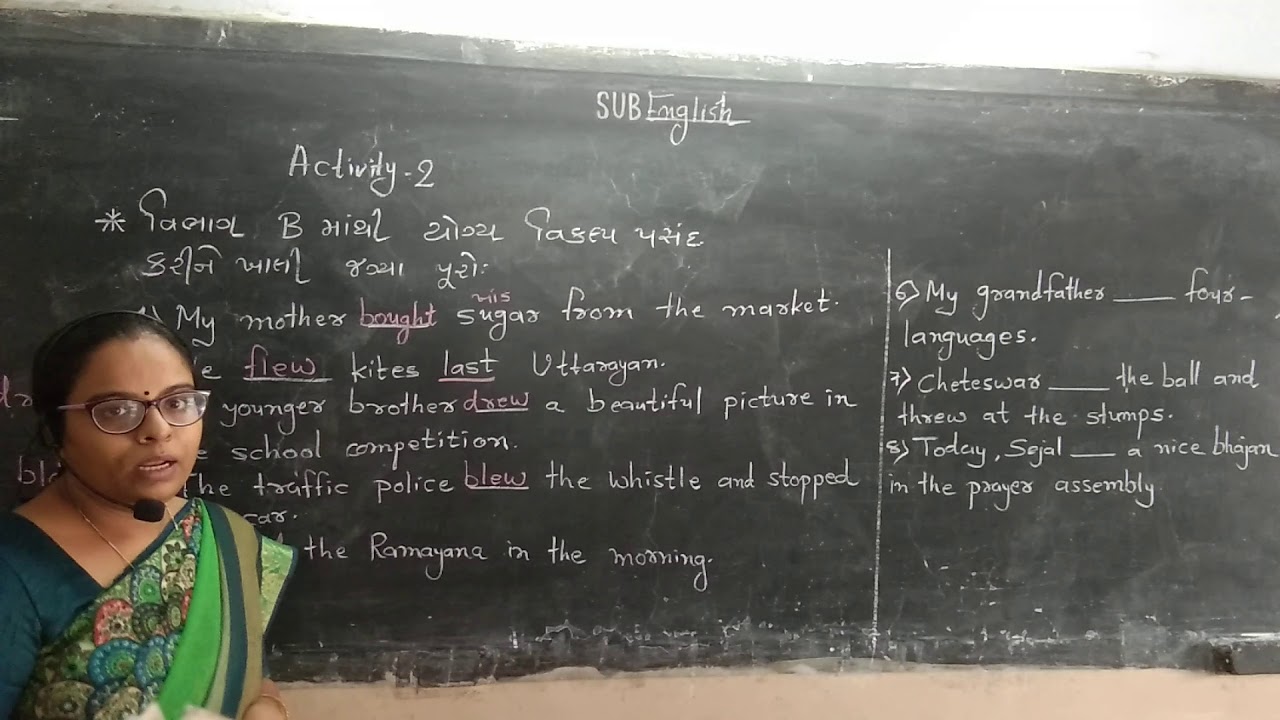 SUB English
Activity-2
* વિભાગ B માંથી યોગ્ય વિકલ્પ પસંદ
કરીને ખાલી જગ્યા પૂરો:
1) My mother bought sugar from the market.
ખાંડ
e flew kites last Uttarayan.
dr
younger brother drew a beautiful picture in
e school competition.
bl
The traffic police blew the whistle and stopped
car.
the Ramayana in the morning.
6) My grandfather ____ four-
languages.
7) Cheteswar ____ the ball and
threw at the stumps.
8) Today, Sejal ____ a nice bhajan
in the prayer assembly.